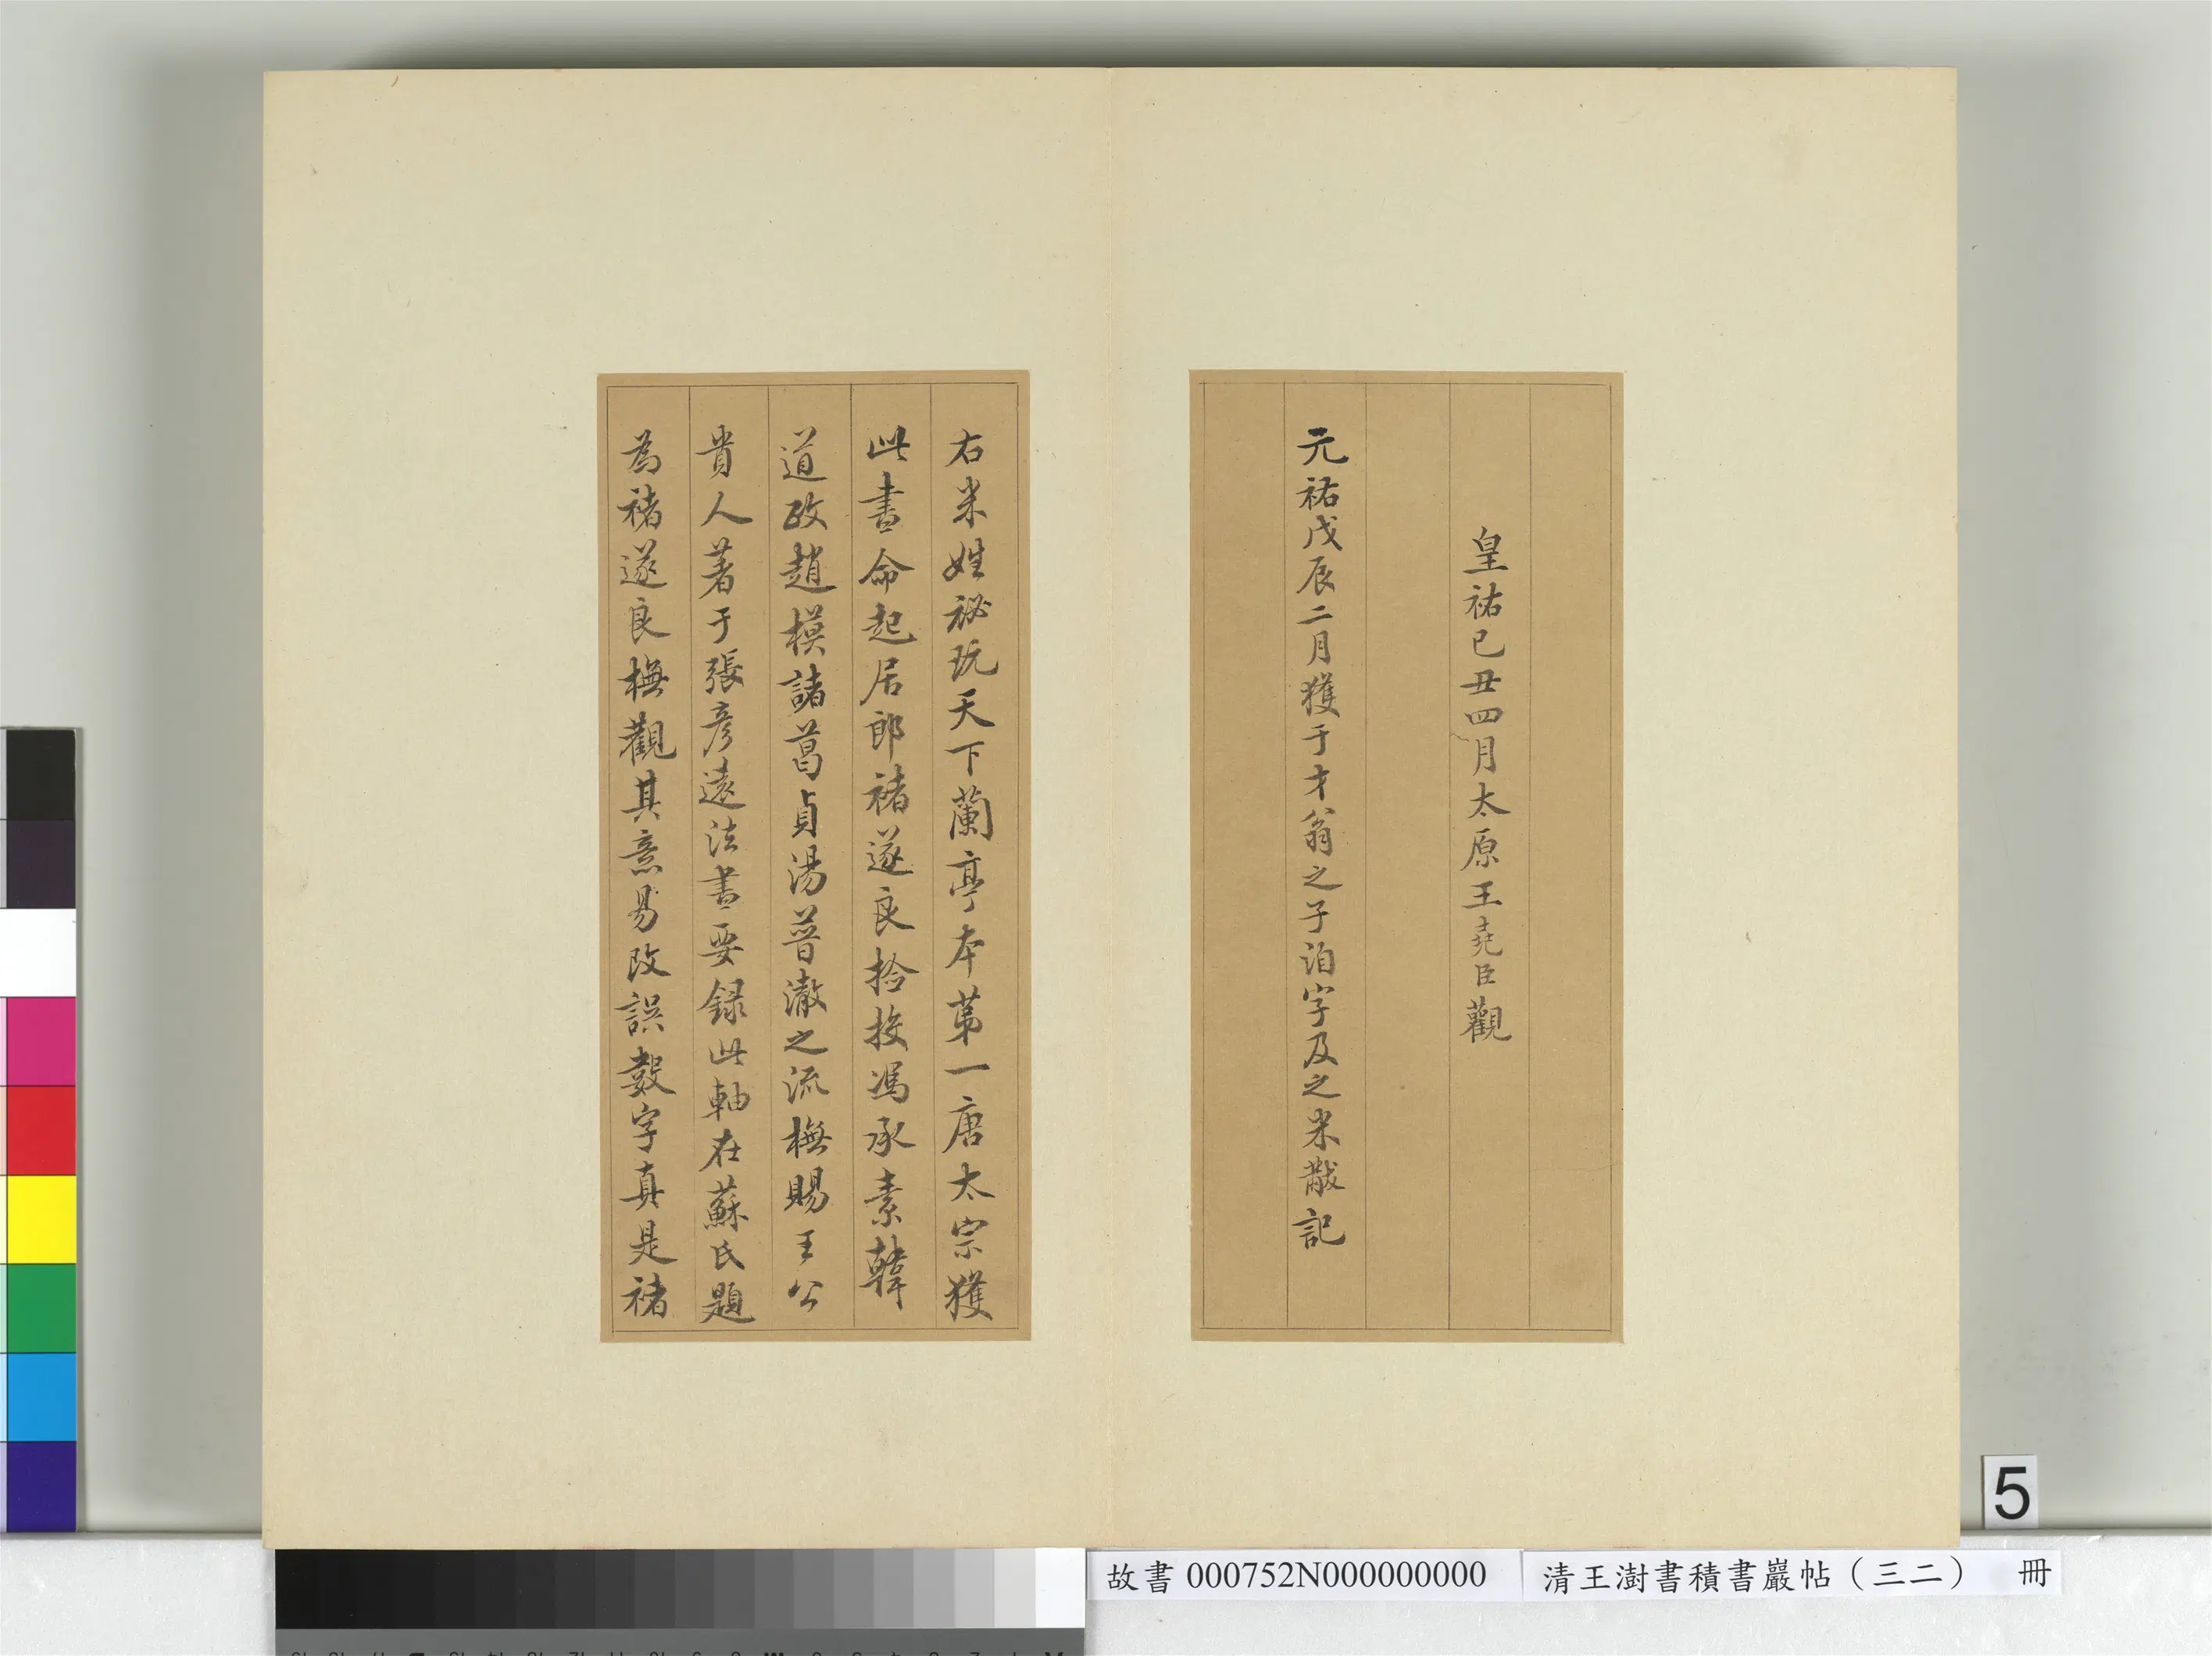 皇祐己丑四月太原王堯臣觀
元祐戊辰二月獲于才翁之子洎字及之米黻記
右米姓祕玩天下蘭亭本第一唐太宗獲
此書命起居郎褚遂良撿挍馮承素韓
道政趙模諸葛貞湯普澈之流橅賜王公
貴人著于張彥遠法書要録此軸在蘇氏題
為褚遂良橅觀其意易改誤數字真是褚
5
故書 000752N000000000
清王澍書積書巖帖（三二） 冊